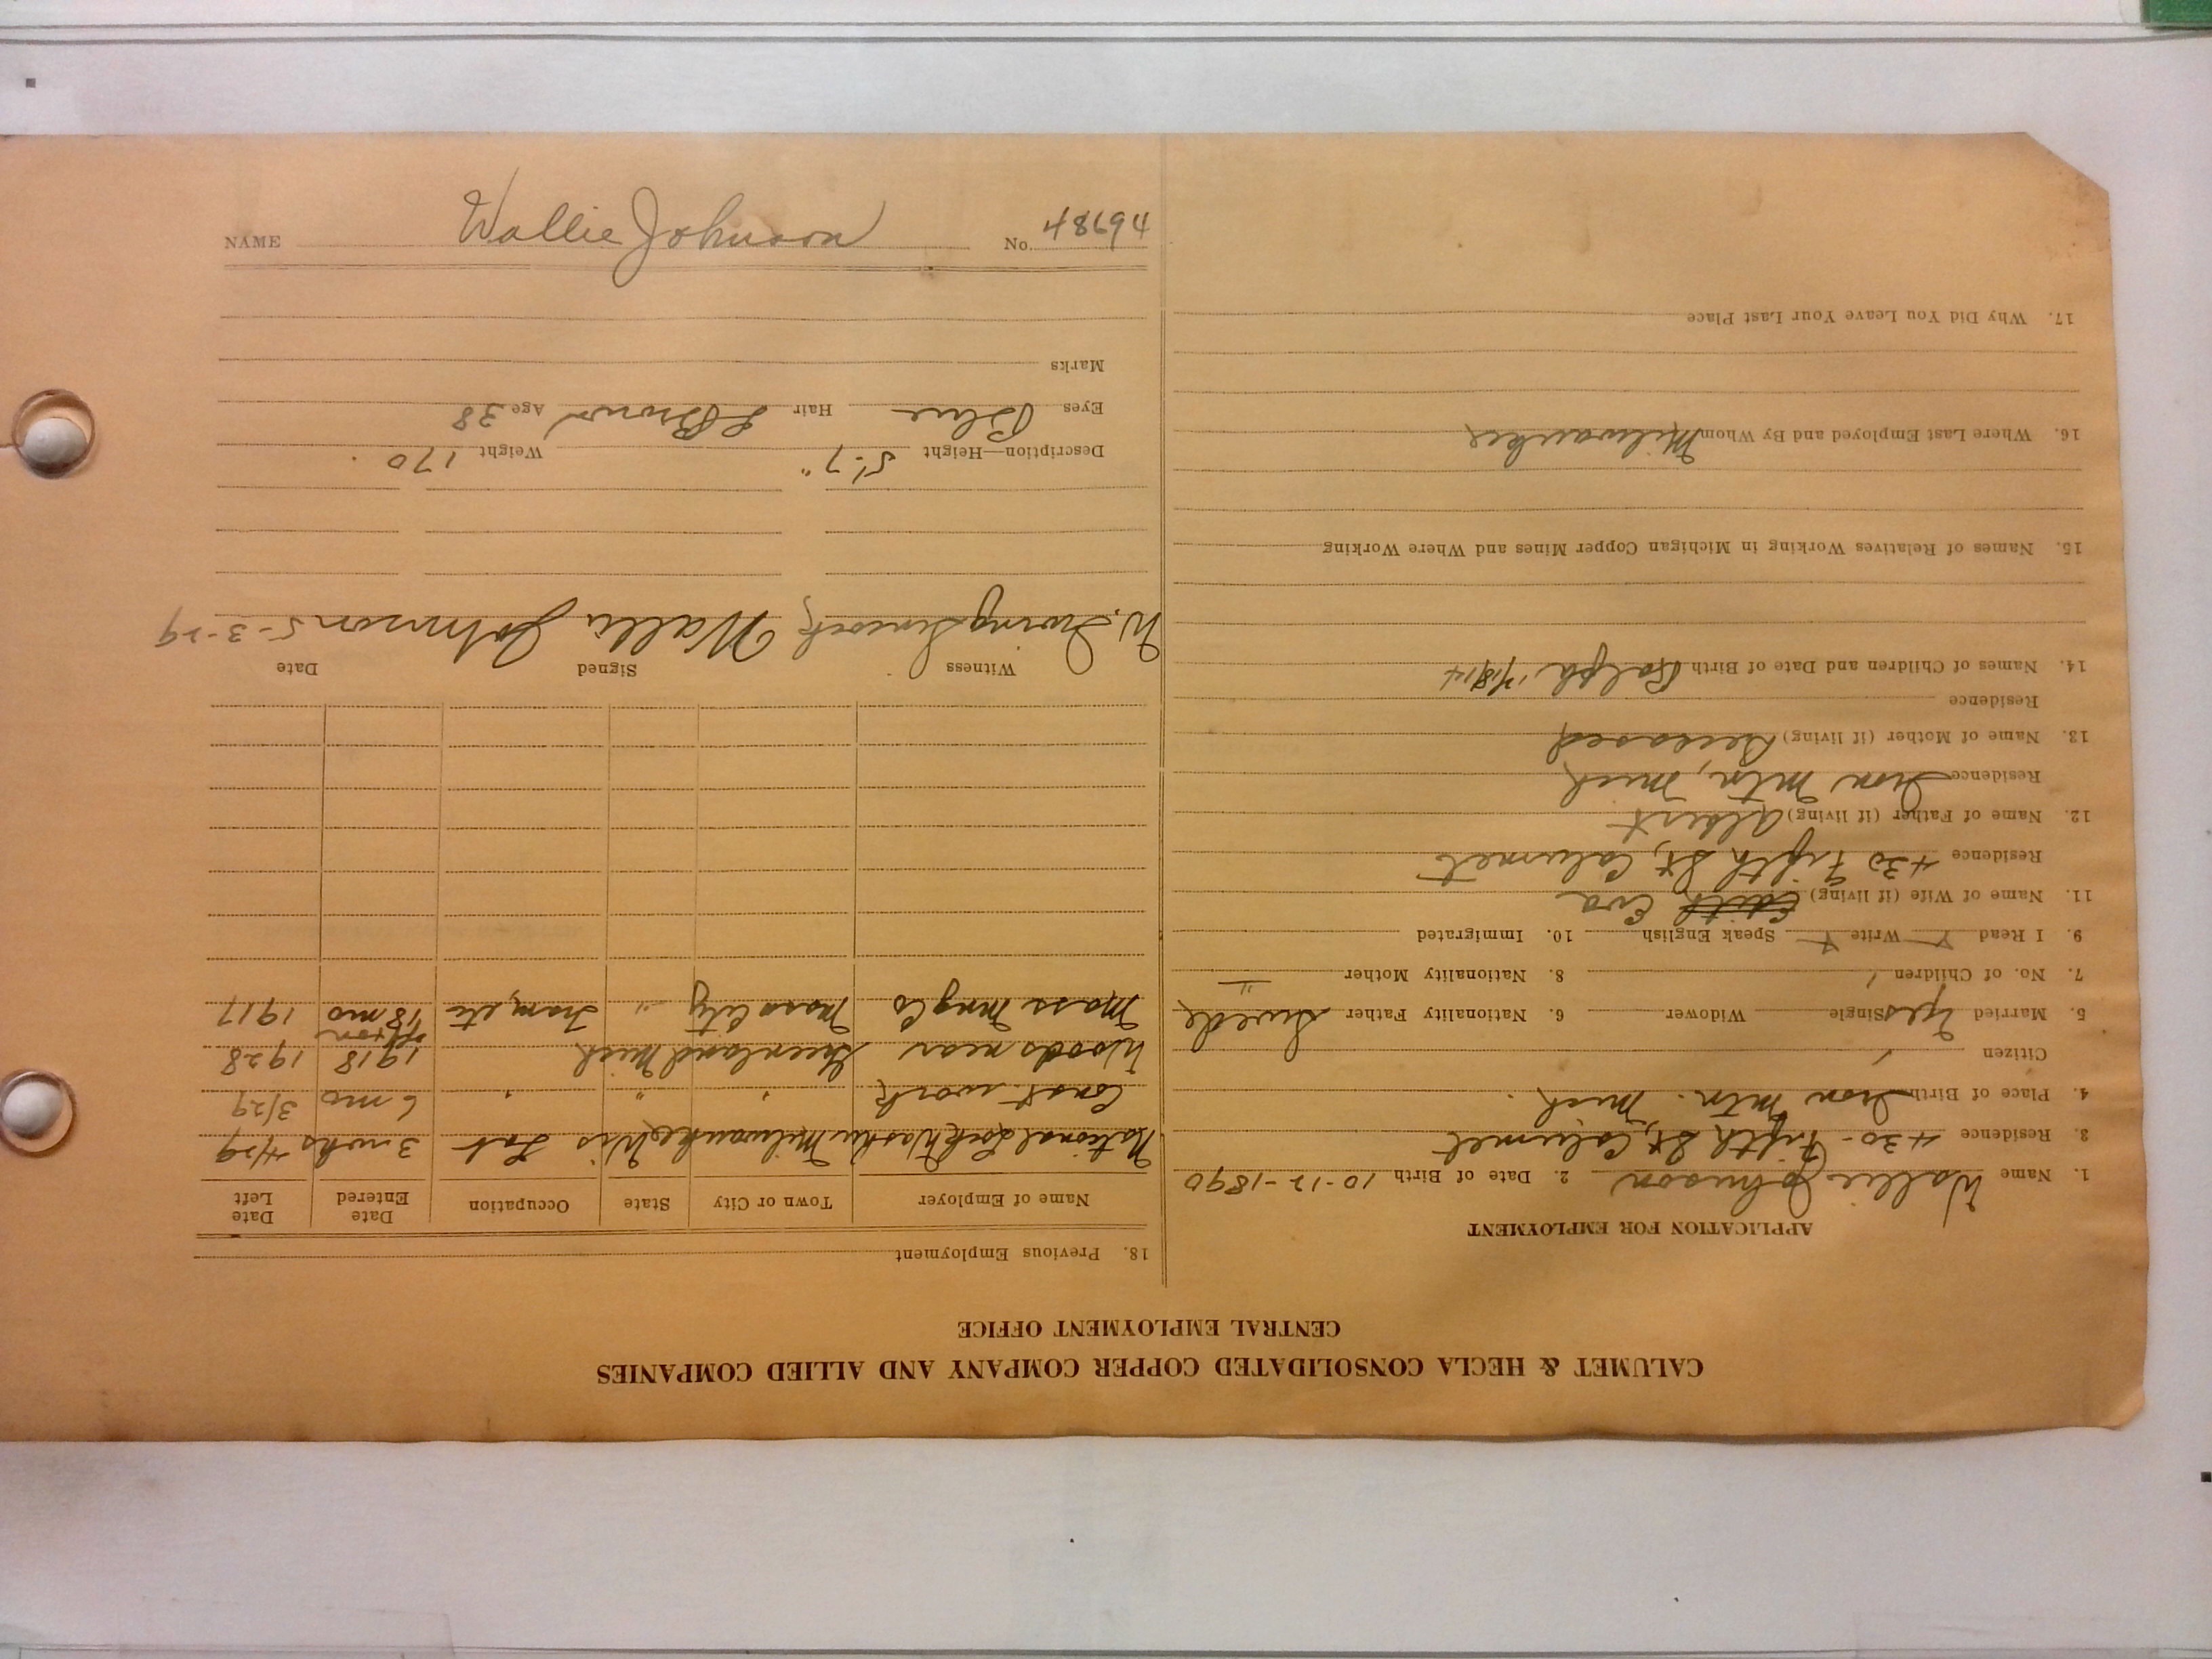 CALUMET & HECLA CONSOLIDATED COPPER COMPANY AND ALLIED COMPANIES
CENTRAL EMPLOYMENT OFFICE
APPLICATION FOR EMPLOYMENT
1. Name Wallie Johnson 2. Date of Birth 10-12-1890
3. Residence 430 - Fifth St, Calumet
4. Place of Birth Iron Mtn. Mich.
Citizen /
5. Married Yes Single Widower 6. Nationality Father Swede
7. No. of Children 1 8. Nationality Mother "
9. I Read Y Write Y Speak English 10. Immigrated
11. Name of Wife (if living) Edith Eva
Residence 430 Fifth St, Calumet
12. Name of Father (if living) Albert
Residence Iron Mtn, Mich
13. Name of Mother (if living) Deceased
Residence
14. Names of Children and Date of Birth Ralph
15. Names of Relatives Working in Michigan Copper Mines and Where Working
16. Where Last Employed and By Whom Milwaukee
17. Why Did You Leave Your Last Place
18. Previous Employment
Name of Employer Town or City State Occupation Date Entered Date Left
National Lock Washer Milwaukee Wis Lab 3 wks 4/29
Const. work " " " 6 mo 3/29
Woods near Greenland Mich 1918 off & on 1928
Mass Mng Co Mass City " Tram, etc 18 mo 1917
Witness Signed Date
W. Irving Simcock Walli Johnson 5-3-29
Description—Height 5'-7" Weight 170.
Eyes Blue Hair L Brown Age 38
Marks
NAME Wallie Johnson No. 48694